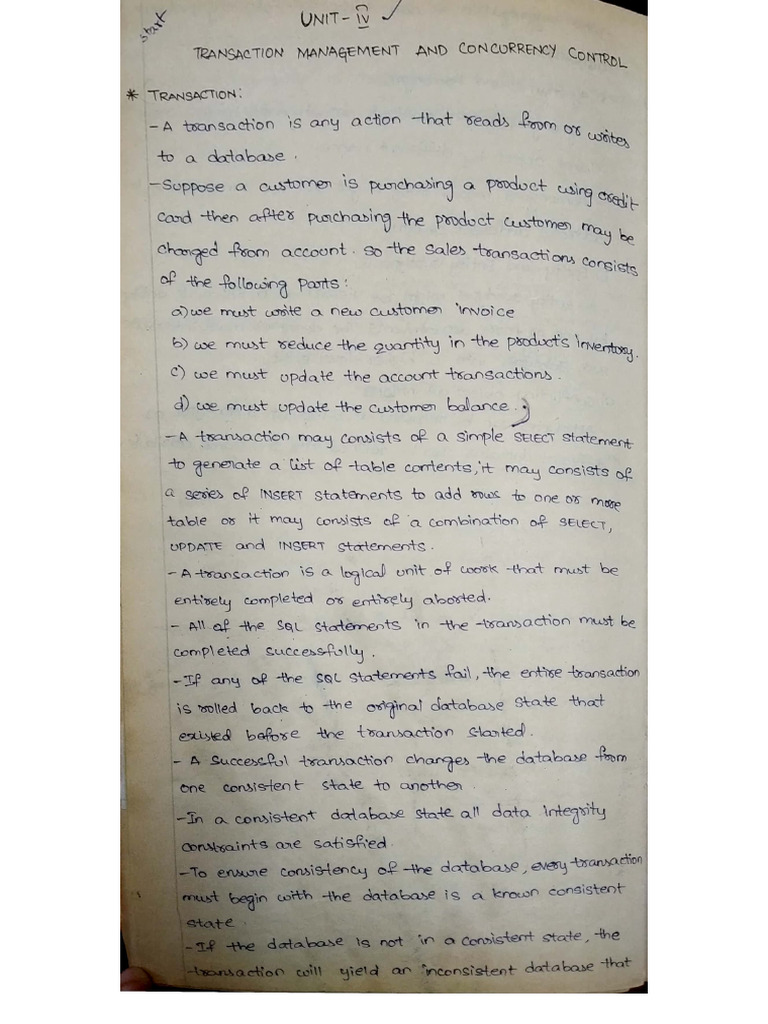 start
UNIT-IV ✓
TRANSACTION MANAGEMENT AND CONCURRENCY CONTROL
* TRANSACTION:
- A transaction is any action that reads from or writes
to a database.
- Suppose a customer is purchasing a product using credit
card then after purchasing the product customer may be
charged from account. so the sales transactions consists
of the following parts:
a) we must write a new customer invoice
b) we must reduce the quantity in the product's inventory.
c) we must update the account transactions.
d) we must update the customer balance.
- A transaction may consists of a simple SELECT statement
to generate a list of table contents, it may consists of
a series of INSERT statements to add rows to one or more
table or it may consists of a combination of SELECT,
UPDATE and INSERT statements.
- A transaction is a logical unit of work that must be
entirely completed or entirely aborted.
- All of the SQL statements in the transaction must be
completed successfully.
- If any of the SQL statements fail, the entire transaction
is rolled back to the original database state that
existed before the transaction started.
- A Successful transaction changes the database from
one consistent state to another.
- In a consistent database state all data integrity
constraints are satisfied.
- To ensure consistency of the database, every transaction
must begin with the database is a known consistent
state.
- If the database is not in a consistent state, the
transaction will yield an inconsistent database that